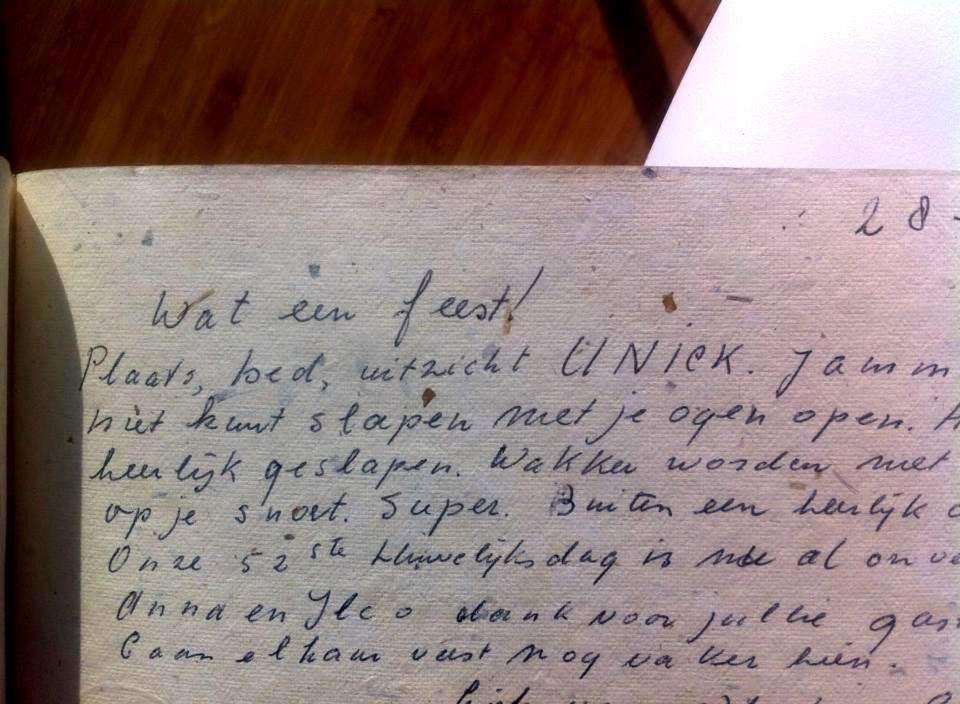 28-
Wat een feest!
Plaats, bed, uitzicht UNIEK. Jamm
niet kunt slapen met je ogen open.
heerlijk geslapen. Wakker worden met
op je snoet. Super. Buiten een heerlijk
Onze 52ste huwelijksdag is nu al onve
Anna en Ilco dank voor jullie gas
vast nog vaker hier.